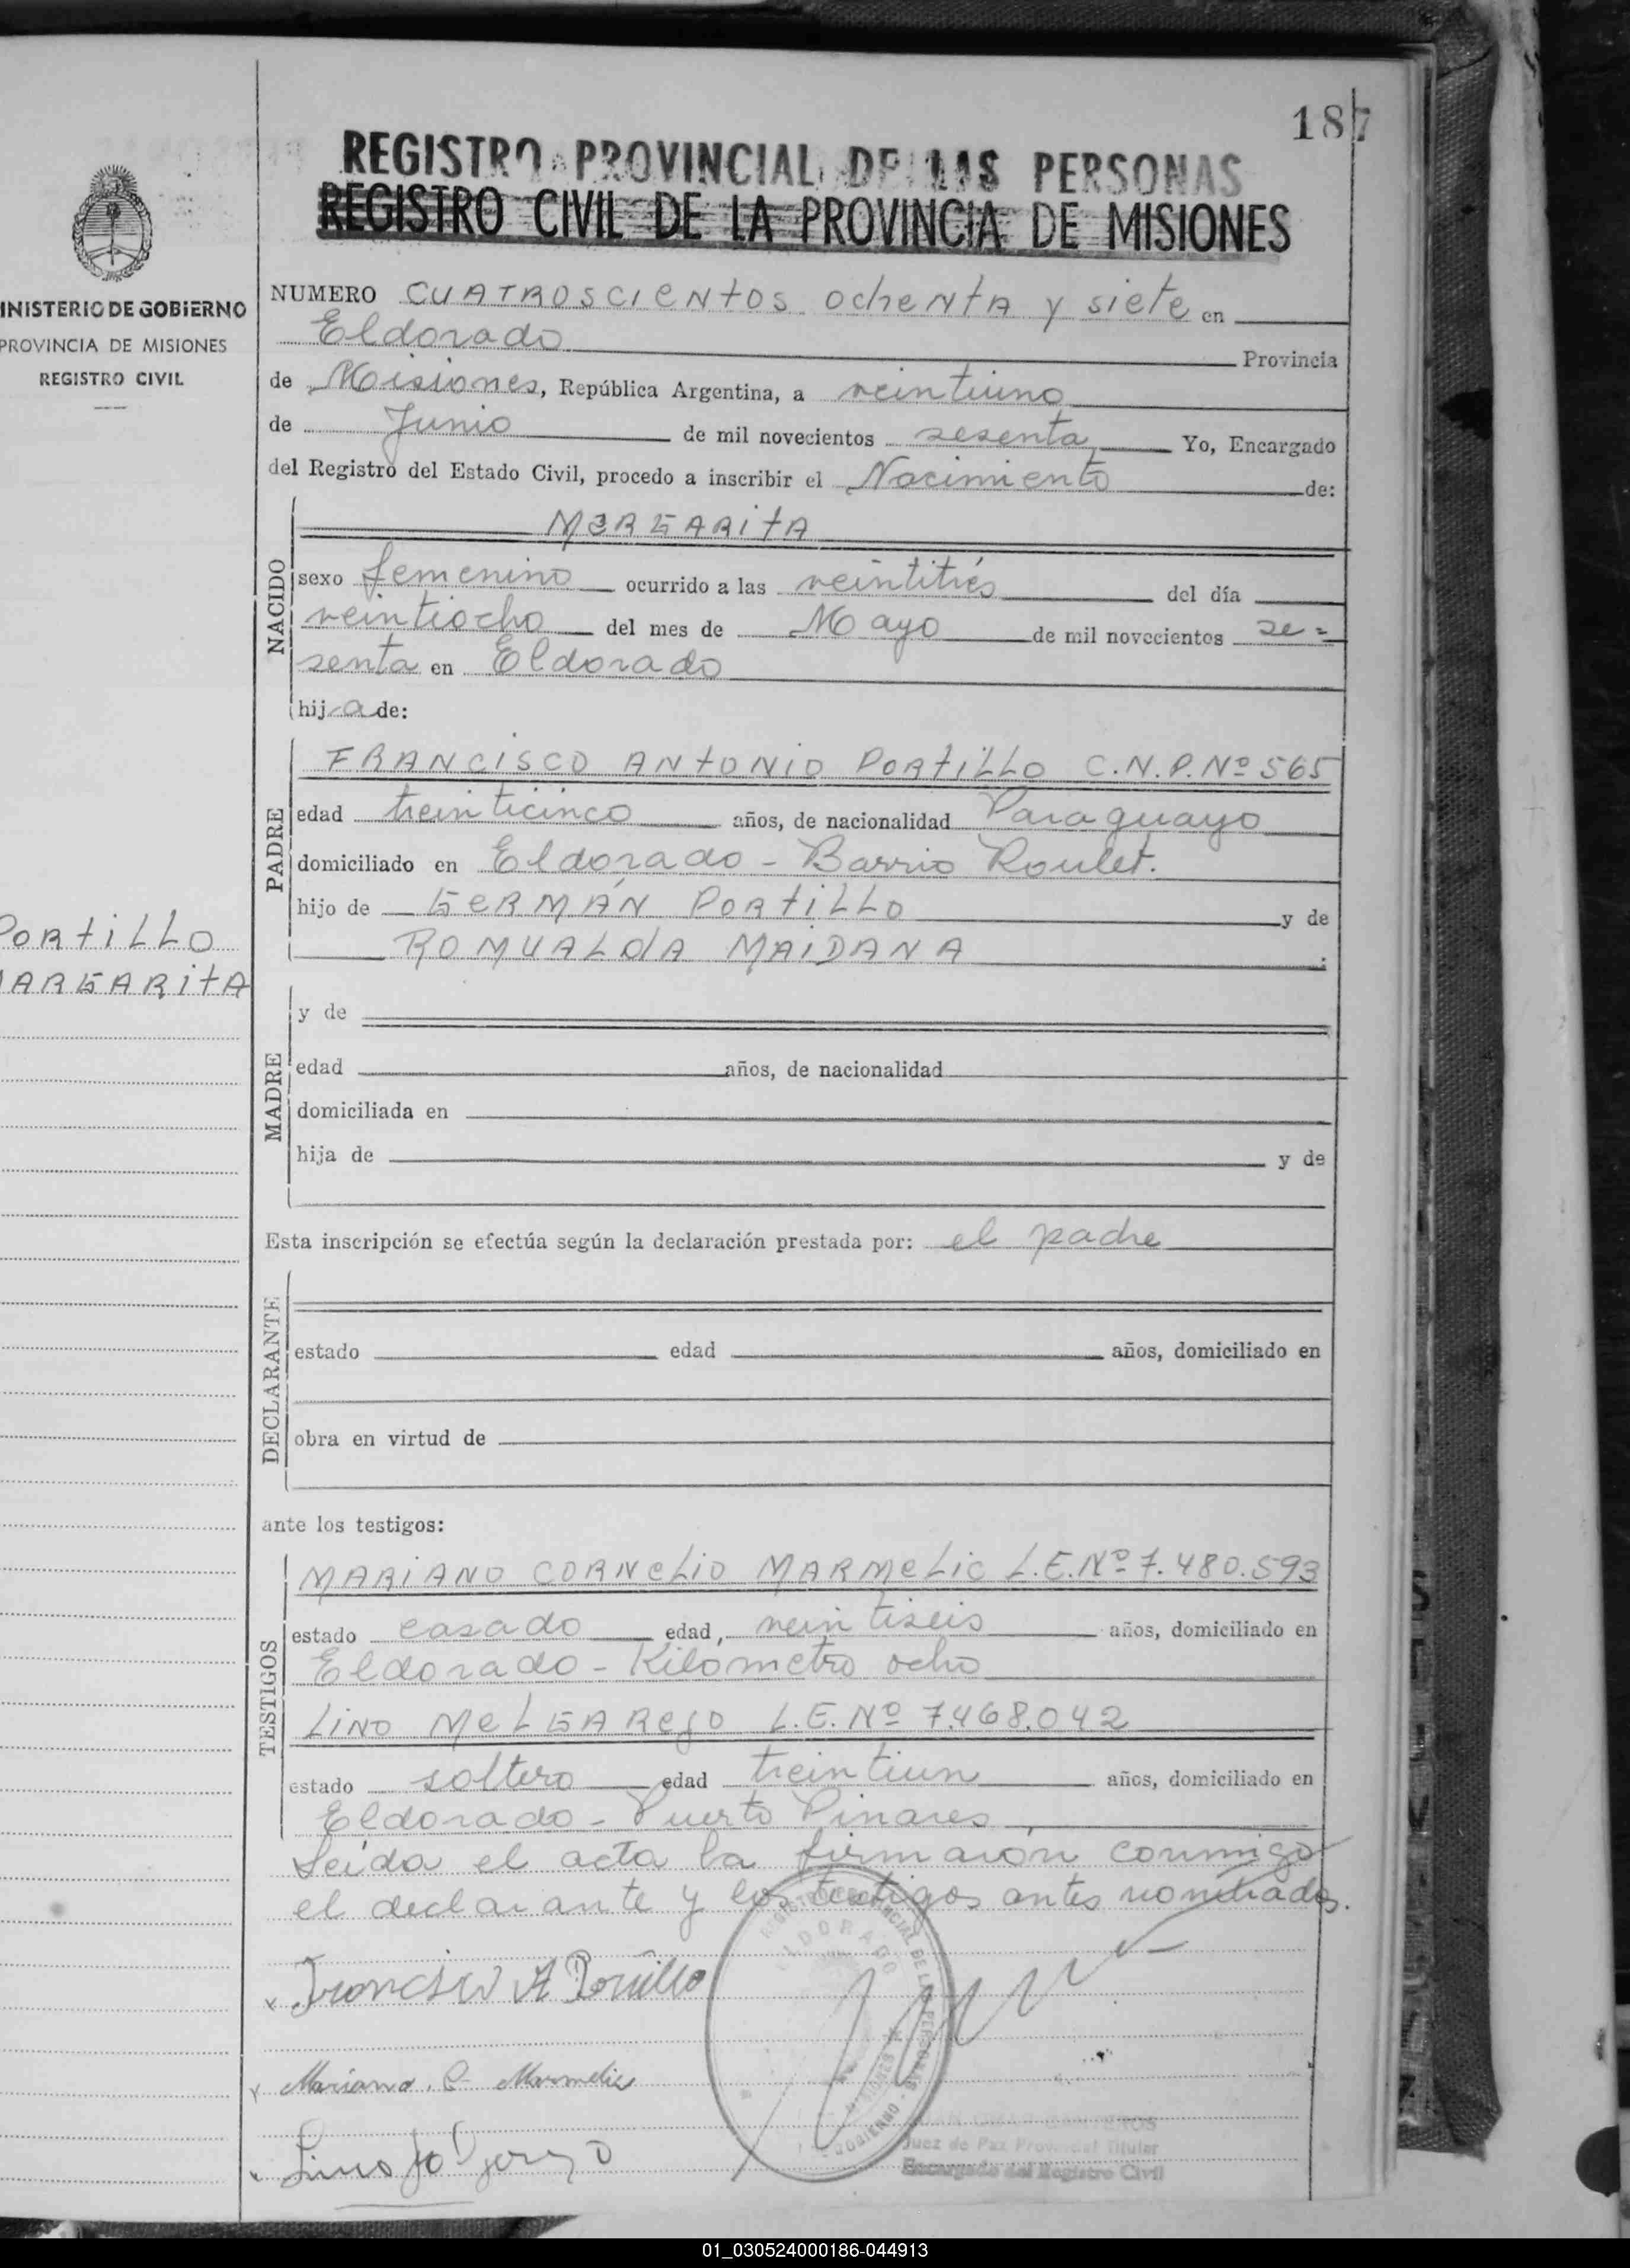 187
REGISTRO PROVINCIAL DE LAS PERSONAS
REGISTRO CIVIL DE LA PROVINCIA DE MISIONES
INISTERIO DE GOBIERNO
PROVINCIA DE MISIONES
REGISTRO CIVIL
NUMERO CUATROSCIENTOS OCHENTA Y SIETE en
Eldorado Provincia
de Misiones, República Argentina, a veintiuno
de Junio de mil novecientos sesenta Yo, Encargado
del Registro del Estado Civil, procedo a inscribir el Nacimiento de:
NACIDO
MARGARITA
sexo femenino ocurrido a las veintitrés del día
veintiocho del mes de Mayo de mil novecientos se=
senta en Eldorado
hija de:
PADRE
FRANCISCO ANTONIO PORTILLO C.N.P.Nº 565
edad treinticinco años, de nacionalidad Paraguayo
domiciliado en Eldorado - Barrio Roulet.
hijo de GERMÁN PORTILLO y de
ROMUALDA MAIDANA
PORTILLO
ARGARITA
MADRE
y de
edad años, de nacionalidad
domiciliada en
hija de y de
Esta inscripción se efectúa según la declaración prestada por: el padre
DECLARANTE
estado edad años, domiciliado en
obra en virtud de
ante los testigos:
TESTIGOS
MARIANO CORNELIO MARMELIC L.E.Nº 7.480.593
estado casado edad, veintiseis años, domiciliado en
Eldorado - Kilómetro ocho
LINO MELGAREJO L.E. Nº 7.468.042
estado soltero edad treintiun años, domiciliado en
Eldorado - Puerto Pinares
Leída el acta la firmaron conmigo
el declarante y los testigos antes nombrados.
x Francisco A Portillo
x Mariano. C. Marmelic
ELDORADO
Juez de Paz Provincial Titular
Encargado del Registro Civil
01_030524000186-044913